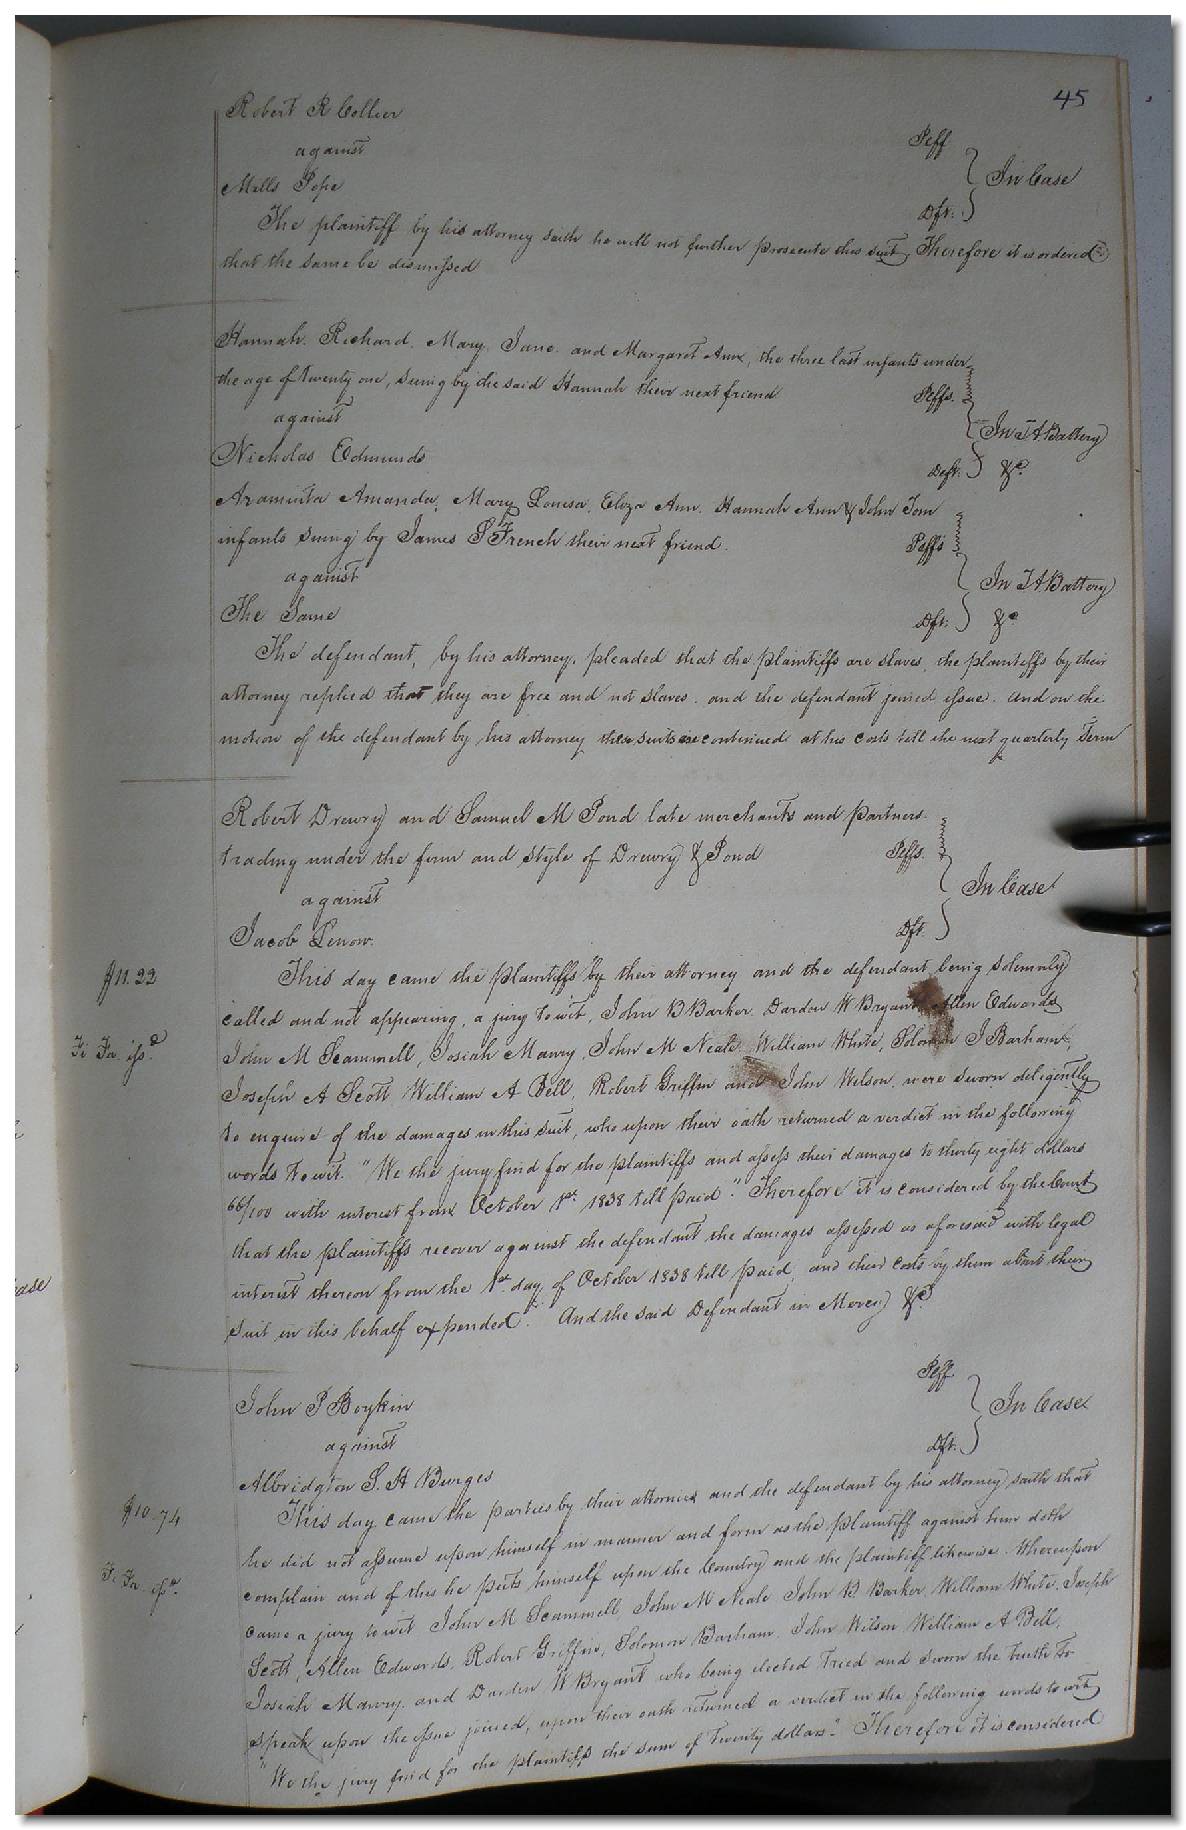 45
Robert R Collier Peff
against In Case
Mills Pope Dft.
The plaintiff by his attorney saith he will not further prosecute this suit, Therefore it is ordered
that the same be dismissed
Hannah. Richard. Mary, Jane. and Margaret Ann, the three last infants under
the age of twenty one, suing by the said Hannah their next friend Peffs.
against In T A Battery
Nicholas Edmunds Deft. &c.
Araminta Amanda, Mary Louisa, Eliza Ann. Hannah Ann & John Tom
infants suing by James S French their next friend. Peffs
against In T A Battery
The Same Dft. &c
The defendant, by his attorney, pleaded that the plaintiffs are slaves, the plaintiffs by their
attorney replied that they are free and not slaves. and the defendant joined issue. And on the
motion of the defendant by his attorney these suits are continued at his costs till the next quarterly Term
Robert Drewry and Samuel M Pond late merchants and partners
trading under the firm and style of Drewry & Pond Peffs.
against In Case
Jacob Lenow. Dft.
$11.22
This day came the plaintiffs by their attorney and the defendant being solemnly
called and not appearing, a jury to wit, John B Barker. Darden W Bryant Allen Edwards
Fi Fa issd.
John M Scammell, Josiah Maury, John M Neale William White, Solomon J Barham,
Joseph A Scott, William A Bell, Robert Griffin and John Wilson, were sworn diligently
to enquire of the damages in this suit, who upon their oath returned a verdict in the following
words to wit. "We the jury find for the plaintiffs and assess their damages to thirty eight dollars
66/100 with interest from October 1st. 1838 till paid". Therefore it is considered by the Court
that the plaintiffs recover against the defendant the damages assessed as aforesaid with legal
interest thereon from the 1st. day of October 1838 till paid, and their costs by them about their
suit in this behalf expended. And the said Defendant in Mercy &c.
John P Boykin Peff
against In Case
Albridgton S. H Burges Dft.
$10.74
This day came the parties by their attornies and the defendant by his attorney saith that
he did not assume upon himself in manner and form as the plaintiff against him doth
Fi Fa issd.
complain and of this he puts himself upon the Country and the plaintiff likewise. Whereupon
came a jury to wit John M Scammell, John M Neale John B. Barker, William White, Joseph
Scott, Allen Edwards. Robert Griffin, Solomon Barham, John Wilson William A Bell,
Josiah Maury. and Darden W Bryant who being elected tried and sworn the truth to
speak upon the issue joined, upon their oath returned a verdict in the following words to wit
"We the jury find for the plaintiffs the sum of Twenty dollars". Therefore it is considered